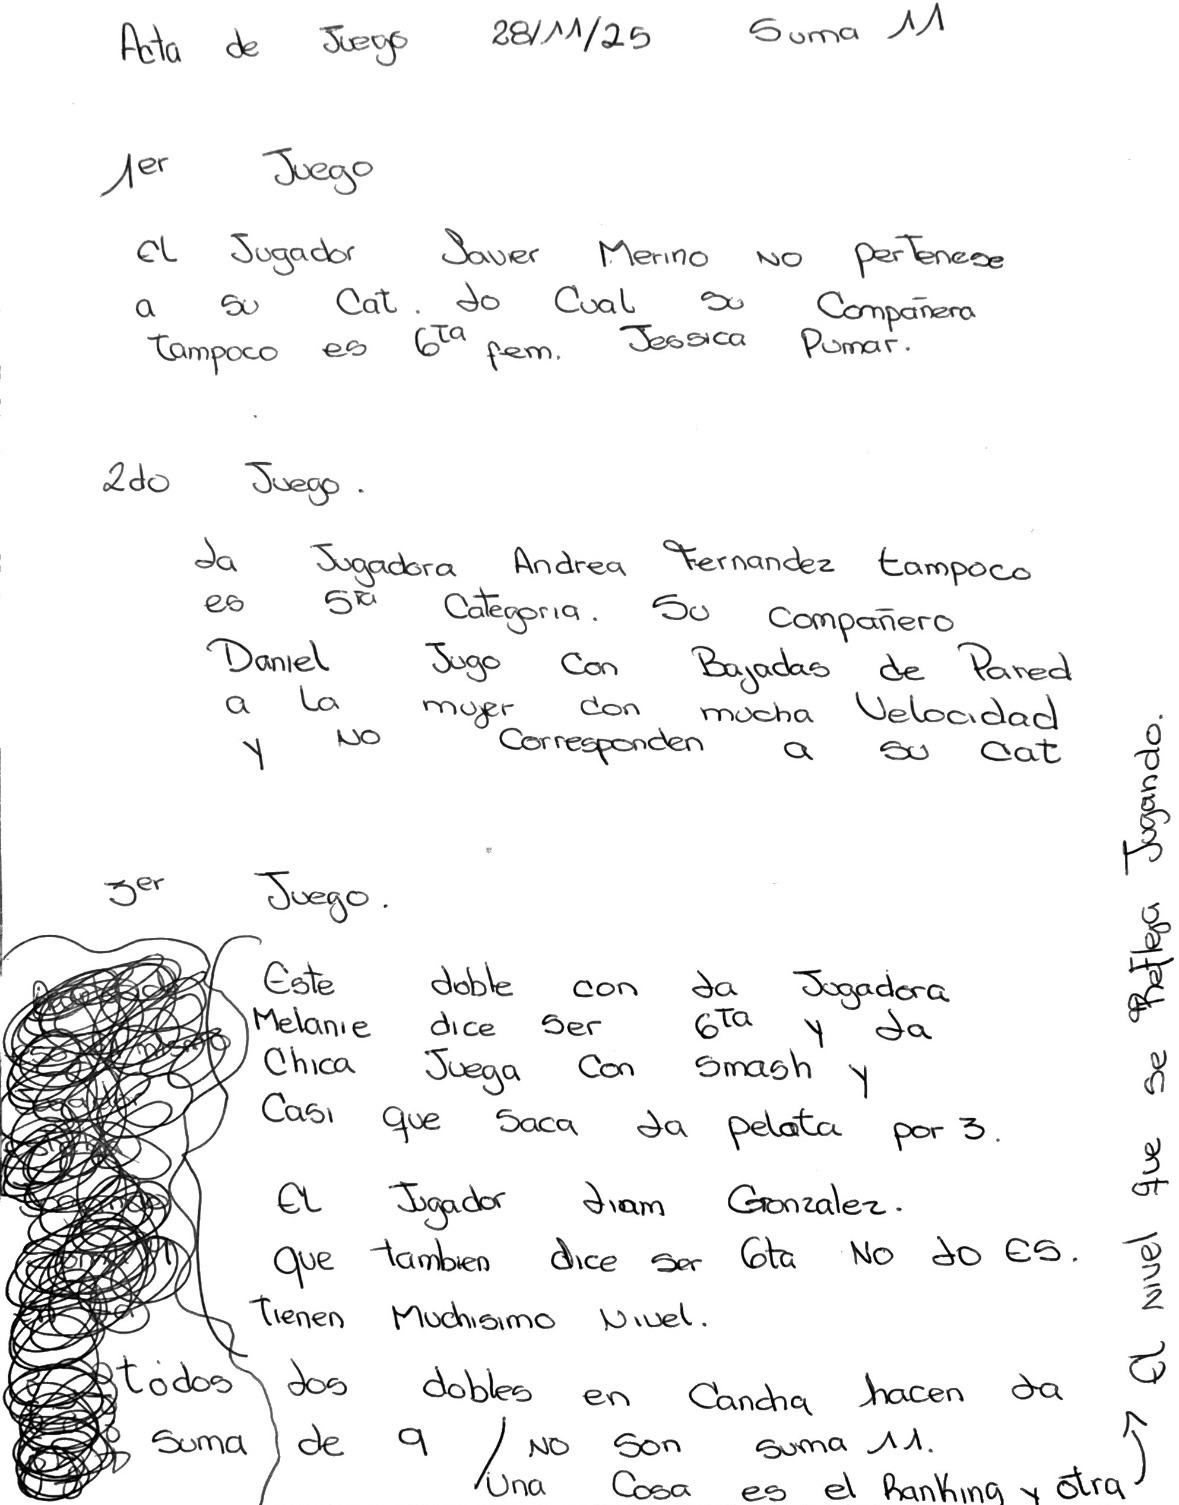 Acta de Juego 28/11/25 Suma 11
1er Juego
El Jugador Javier Merino no pertenese
a su Cat. lo Cual su Compañera
tampoco es 6ta fem. Jessica Pumar.
2do Juego.
la Jugadora Andrea Fernandez tampoco
es 5ta Categoria. Su compañero
Daniel Jugo con Bajadas de Pared
a la mujer con mucha Velocidad
y no Corresponden a su cat
3er Juego.
Este doble con la Jugadora
Melanie dice ser 6ta y la
Chica Juega con smash y
Casi que saca la pelota por 3.
El Jugador liam Gonzalez.
que tambien dice ser 6ta No lo ES.
Tienen Muchisimo Nivel.
todos los dobles en Cancha hacen la
suma de 9 / no son suma 11.
Una Cosa es el Ranking y otra
El nivel que se Refleja Jugando.